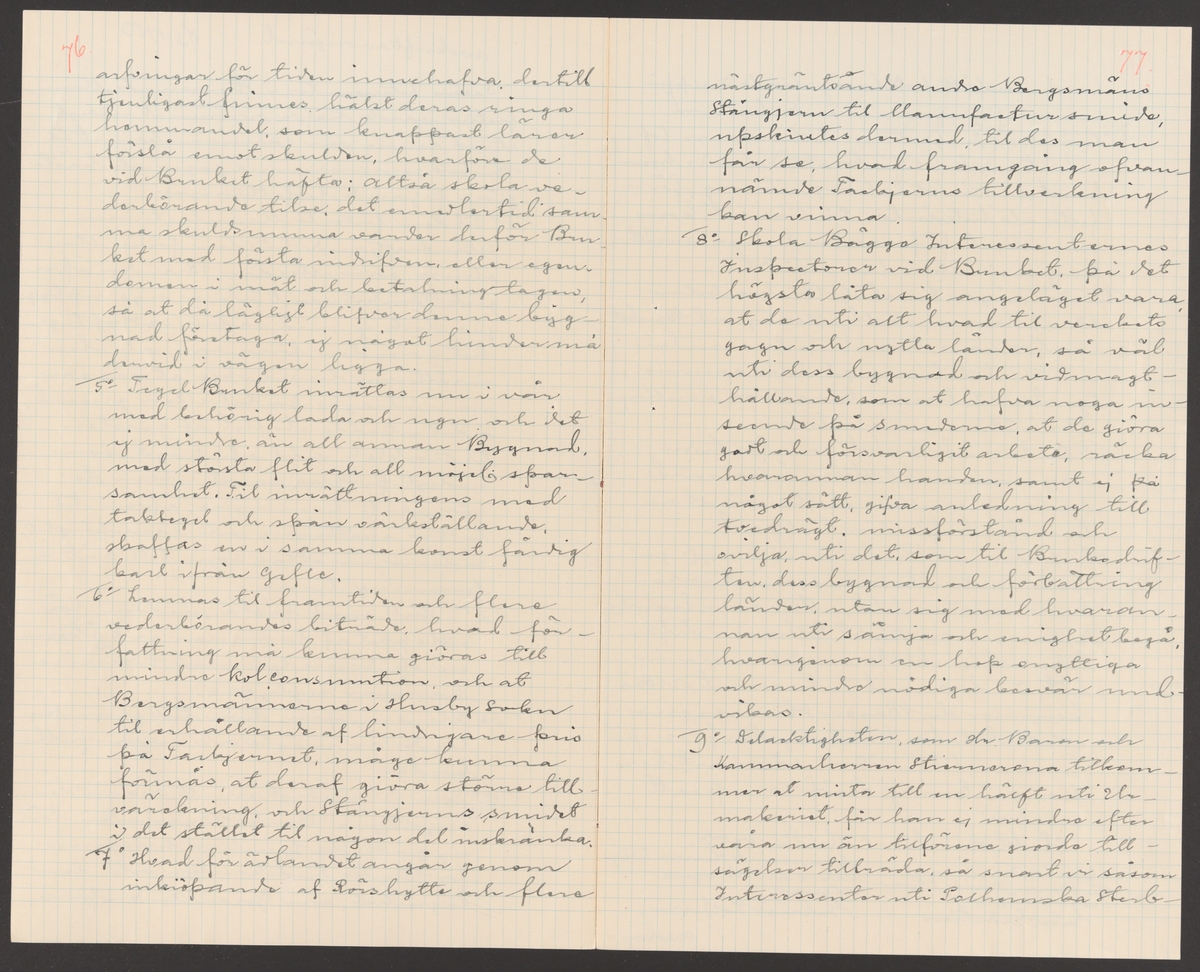 76
arfvingar för tiden innehafva, dertill
tjenligast finnes, hälst deras ringa
hemmandel, som knappast lärer
förslå emot skulden, hvarföre de
vid Bruket häfta; altså skola ve-
derbörande tilse, det emedlertid sam-
ma skuldsumma varder inför Bru-
ket med första indrifven, eller egen-
domen i mät och betalning tagen,
så at då lägligt blifver denne byg-
nad företaga, ej något hinder må
dervid i vägen ligga.
5º Tegel Bruket inrättas nu i vår
med behörig lada och ugn, och det
ej mindre, än all annan Bygnad,
med största flit och all möjel: spar-
samhet. Til inrättningens med
taktegel och spån värkställande,
skaffas en i samma konst färdig
karl ifrån Gefle.
6º Lemnas til framtiden och flere
vederbörandes biträde, hvad för-
fattning må kunna giöras till
mindre kolconsumtion, och at
Bergsmännerne i Husby Sokn
til erhållande af lindrigare pris
på Tackjernet, måge kunna
förmås, at deraf giöra större till-
värckning, och Stångjerns smidet
i det stället til någon del inskränka.
7º Hvad för ärlandet angår genom
inkiöpande af Rörshytte och flere
77
nästgräntsande andre Bergsmäns
Stångjern til Manufactur smide,
upskiutes dermed, til des man
får se, hvad framgång ofvan-
nämde Tackjerns tillverkning
kan vinna.
8º Skola Bägge Interessenternes
Inspectorer vid Bruket, på det
högsta låta sig angeläget vara,
at de uti alt hvad til verckets
gagn och nytta länder, så väl
uti dess bygnad och vidmagt-
hållande, som at hafva noga in-
seende på smederne, at de giöra
godt och försvarligit arbete, räcka
hvarannan handen, samt ej på
något sätt, gifva anledning till
tvedrägt, missförstånd och
ovilja, uti det, som til Bruksdrif-
ten, dess bygnad och förbättring
länder, utan sig med hvaran-
nan uti sämja och enighet begå,
hvarigenom en hop onyttiga
och mindre nödiga besvär und-
vikas.
9º Delacktigheten, som hr Baron och
Kammarherren Stiernerona tilkom-
mer at mista till en hälft uti Ur-
makeriet, får han ej mindre efter
våra nu än tilförene giorde till-
sägelser tillträda, så snart vi såsom
Interessenter uti Polhemska Sterb-